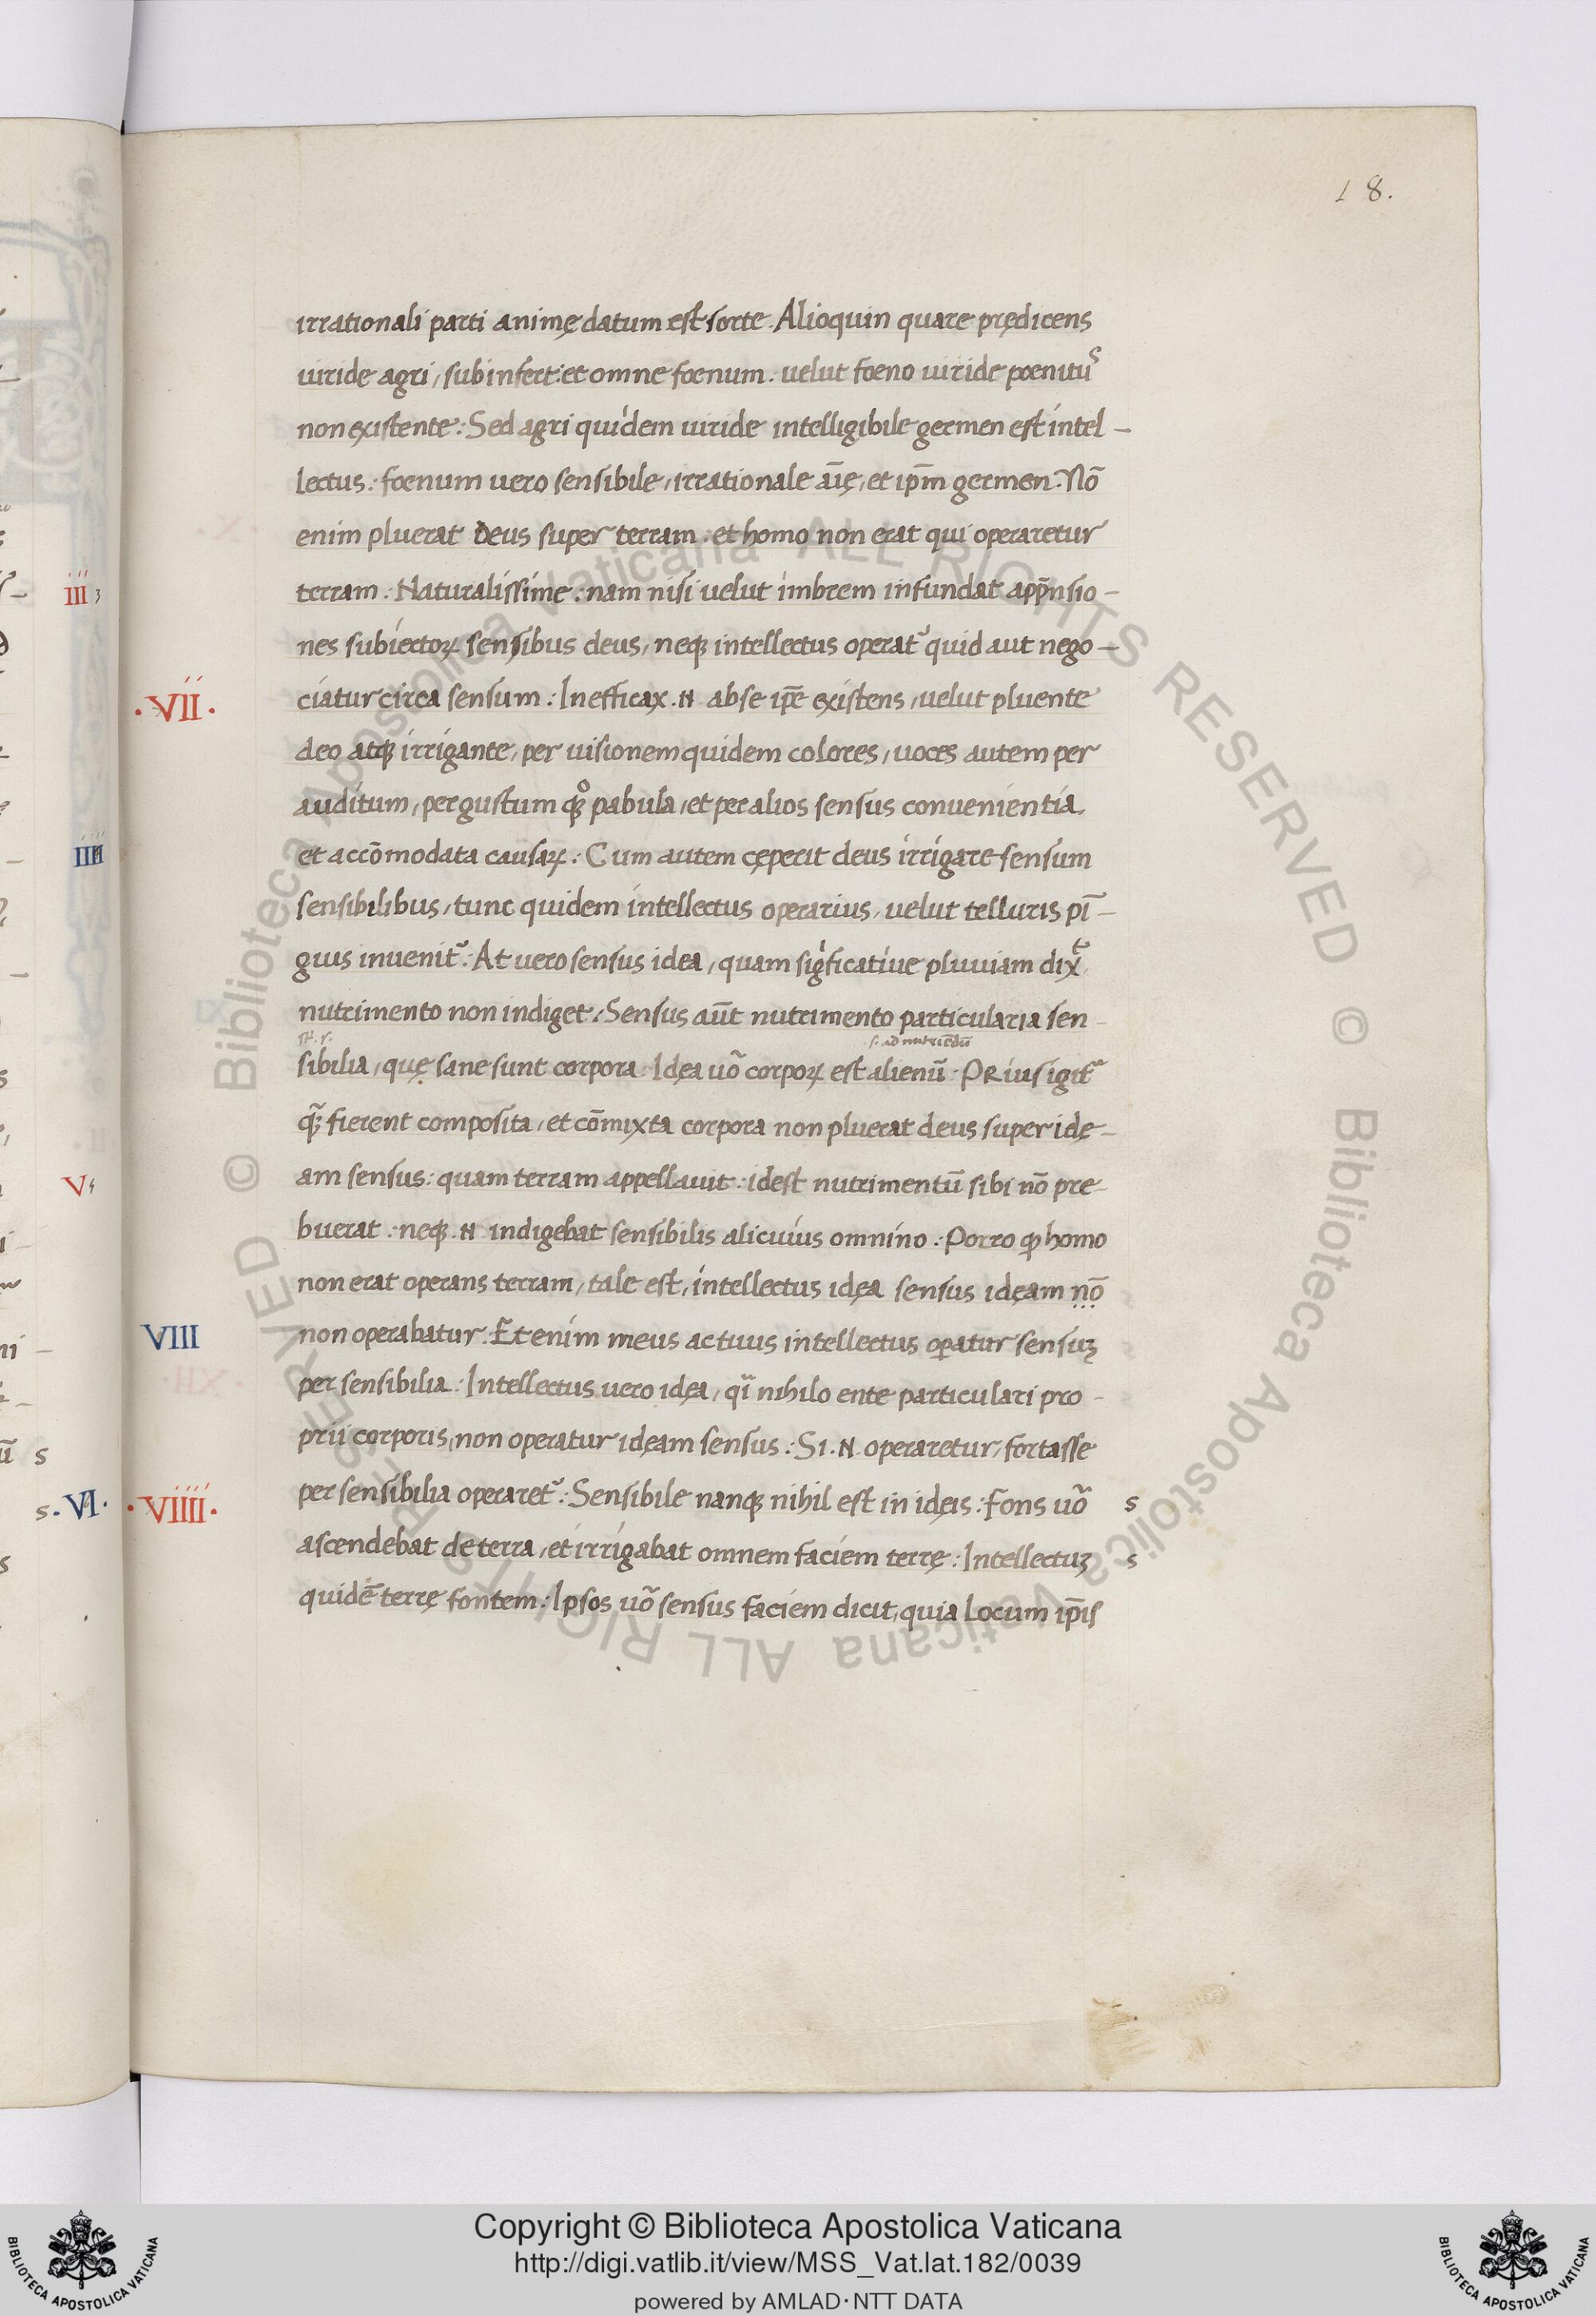 18.
irrationali parti animę datum est sorte. Alioquin quare prędicens
uiride agri, subinfert: et omne foenum: uelut foeno uiride poenitus
non existente: Sed agri quidem uiride intelligibile germen est intel-
lectus: foenum uero sensibile, irrationale aīę, et ip̄m germen. Nō
enim pluerat Deus super terram: et homo non erat qui operaretur
terram: Naturalissime: nam nisi uelut imbrem infundat app̄nsio-
nes subiectoꝝ sensibus deus, neqꝫ intellectus operat᷑ quid aut nego-
·VII·
ciatur circa sensum: Inefficax .N. abse ip̄e existens, uelut pluente
deo atqꝫ irrigante, per uisionem quidem colores, uoces autem per
auditum, per gustum qꝫͦ pabula, et per alios sensus conuenientia
et accōmodata causaꝝ: Cum autem cęperit deus irrigare sensum
sensibilibus, tunc quidem intellectus operarius, uelut telluris pī-
guis inuenit᷑: At uero sensus idea, quam sigͥficatiue pluuiam dixͭ
nutrimento non indiget: Sensus aūt nutrimento particularia sen-
s. ad nutriēdū
sibilia, quę sane sunt corpora: Idęa uō corpoꝝ est alienū: PRius igit᷑
qꝫ̃ fierent composita, et cōmixta corpora non pluerat deus super idę-
am sensus: quam terram appellauit: idest nutrimentū sibi nō pre-
buerat: neqꝫ .N. indigebat sensibilis alicuius omnino: Porro ꝙ homo
non erat operans terram, tale est, intellectus idęa sensus idęam nō
VIII
non operabatur: Etenim meus actuus intellectus oꝑatur sensuꝫ
per sensibilia: Intellectus uero idęa, qī nihilo ente particulari pro-
prii corporis, non operatur idęam sensus: Si .N. operaretur, fortasse
·VIIII·
per sensibilia operaret᷑: Sensibile nanqꝫ nihil est in idęis: Fons uō s
ascendebat de terra, et irrigabat omnem faciem terrę: Intellectuꝫ s
quidē terrę fontem: Ipsos uō sensus faciem dicit, quia locum ip̄is
III
IIII
V
s
s. VI·
© Biblioteca Apostolica Vaticana ALL RIGHTS RESERVED © Biblioteca Apostolica Vaticana ALL RIGHTS RESERVED
Copyright © Biblioteca Apostolica Vaticana
http://digi.vatlib.it/view/MSS_Vat.lat.182/0039
powered by AMLAD·NTT DATA
BIBLIOTECA APOSTOLICA VATICANA
BIBLIOTECA APOSTOLICA VATICANA